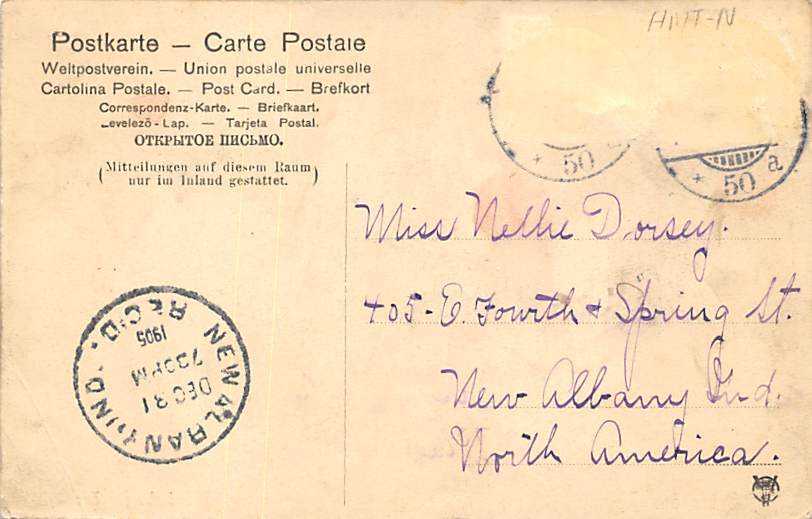 Postkarte — Carte Postale
Weltpostverein. — Union postale universelle
Cartolina Postale. — Post Card. — Brefkort
Correspondenz-Karte. — Briefkaart.
Levelező-Lap. — Tarjeta Postal.
ОТКРЫТОЕ ПИСЬМО.
(Mitteilungen auf diesem Raum
nur im Inland gestattet.)
* 50
* 50 a
Miss Nellie Dorsey.
405-E. Fourth & Spring St.
New Albany Ind.
North America.
NEW ALBANY, IND.
REC'D.
1905
730PM
DEC 31